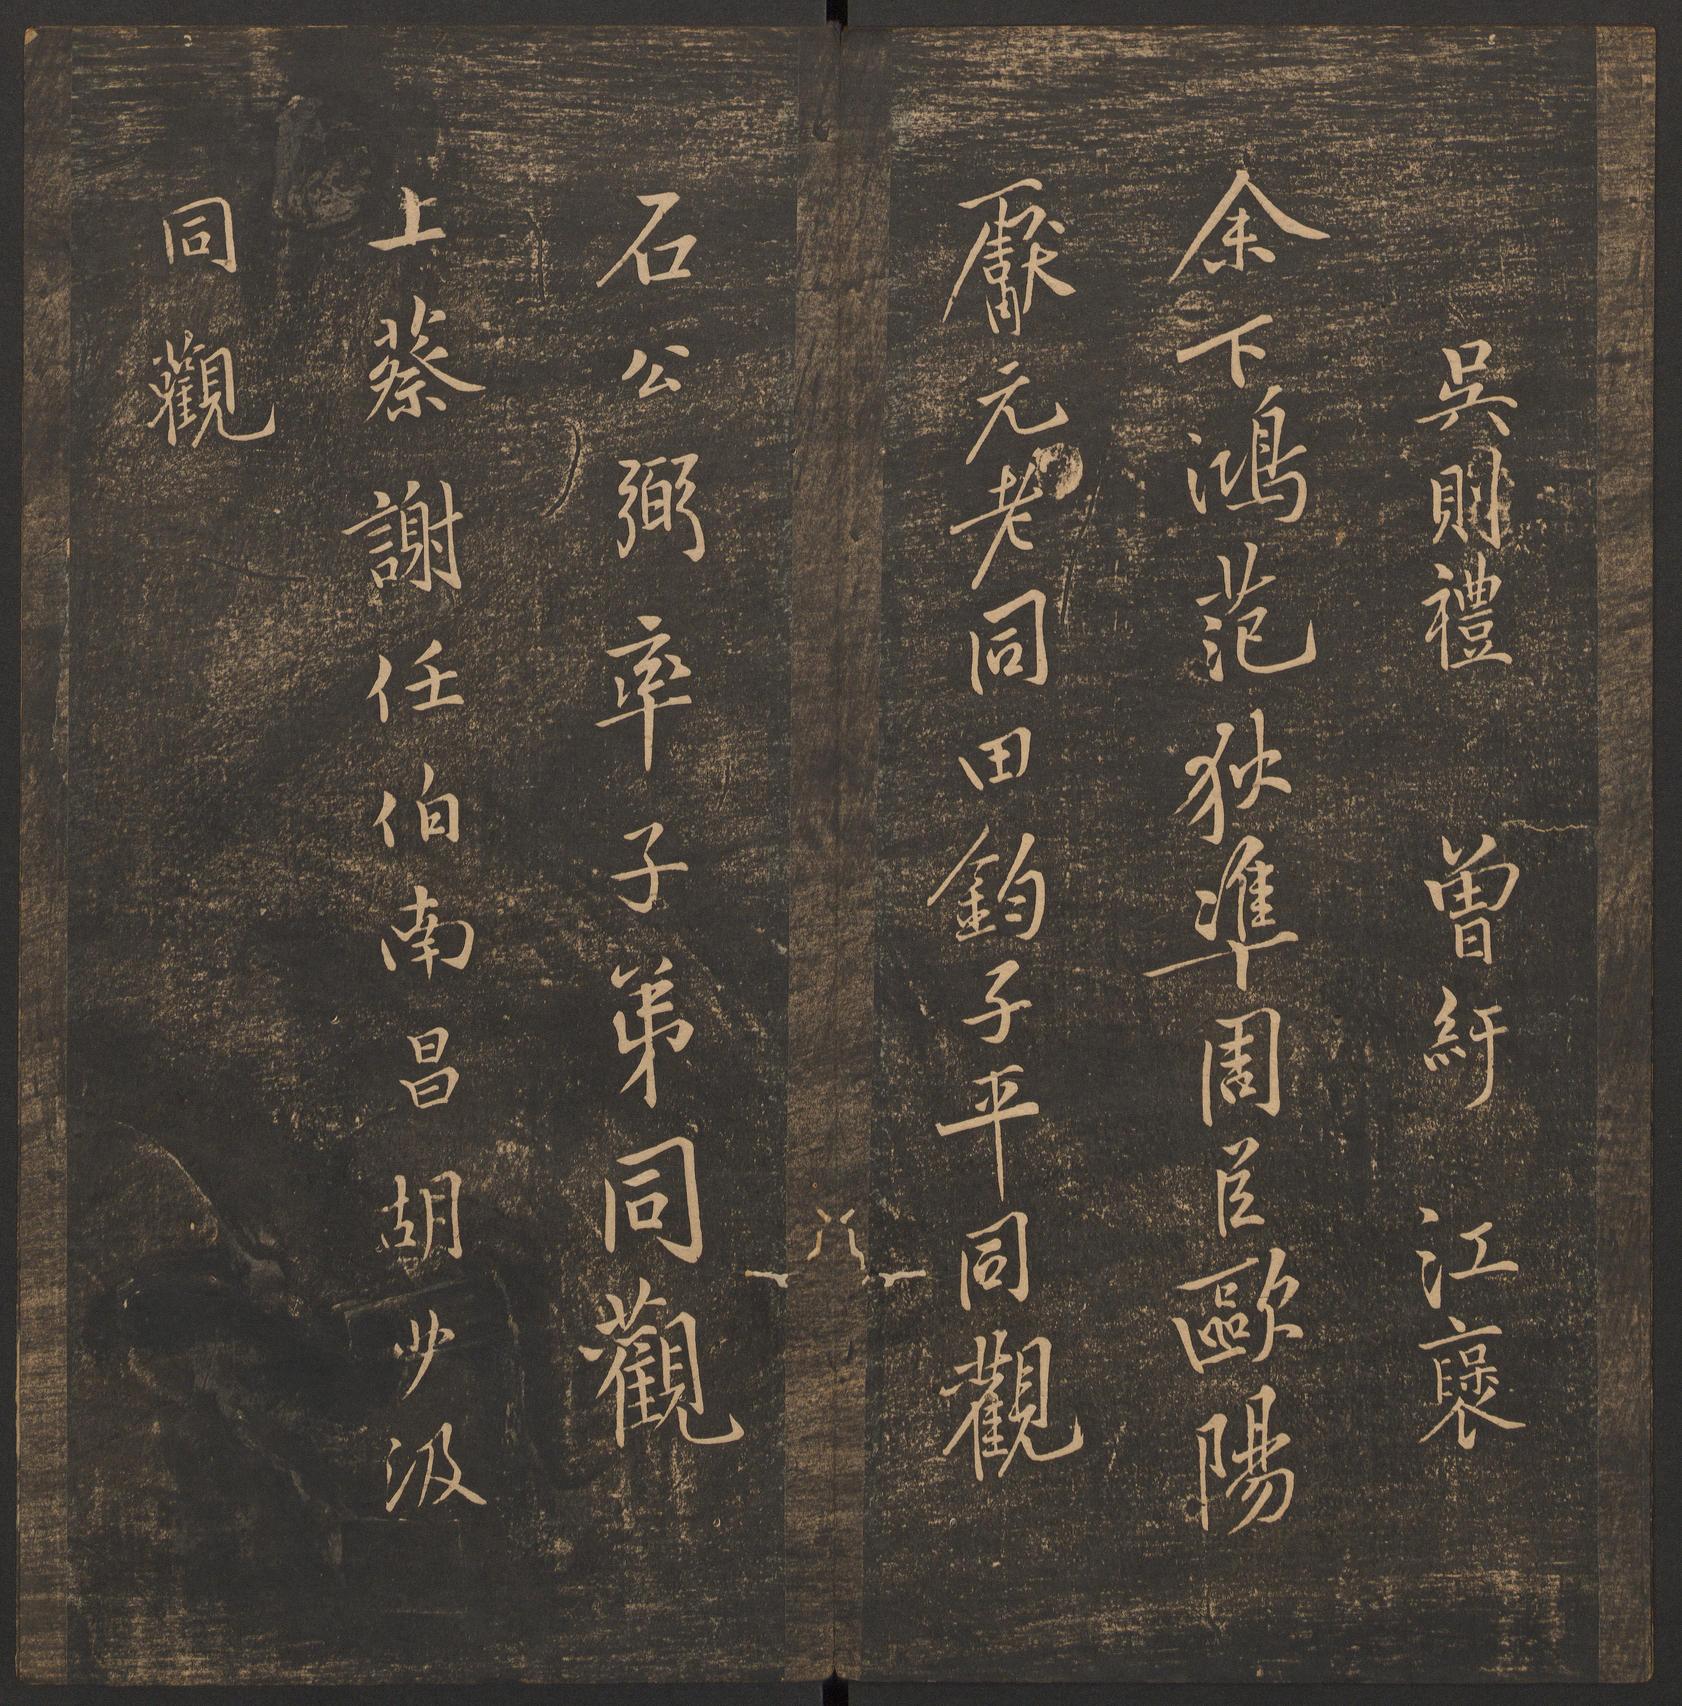 吳則禮 曾紆 江褒
余卞鴻范狄準周臣歐陽
獻元老同田鈞子平同觀
石公弼率子弟同觀
上蔡謝任伯南昌胡少汲
同觀